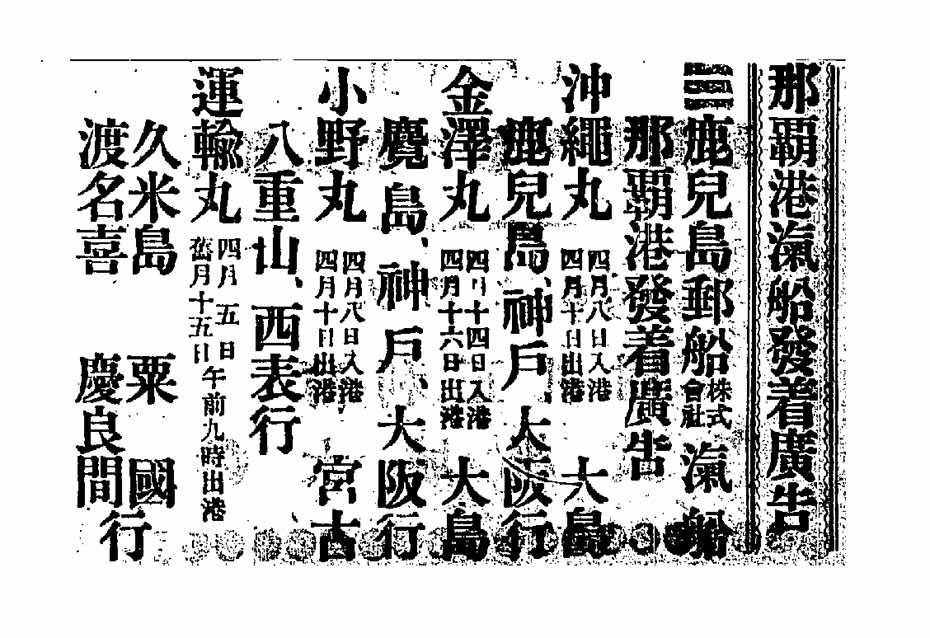 那覇港滊船發着廣告
鹿兒島郵船株式會社滊船
那覇港發着廣告
沖繩丸 四月八日入港 四月十日出港 大島
鹿兒島、神戸、大阪行
金澤丸 四月十四日入港 四月十六日出港 大島
麑島、神戸、大阪行
小野丸 四月八日入港 四月十日出港 宮古
八重山、西表行
運輸丸 四月五日 舊月十五日 午前九時出港
久米島 粟國
渡名喜 慶良間 行